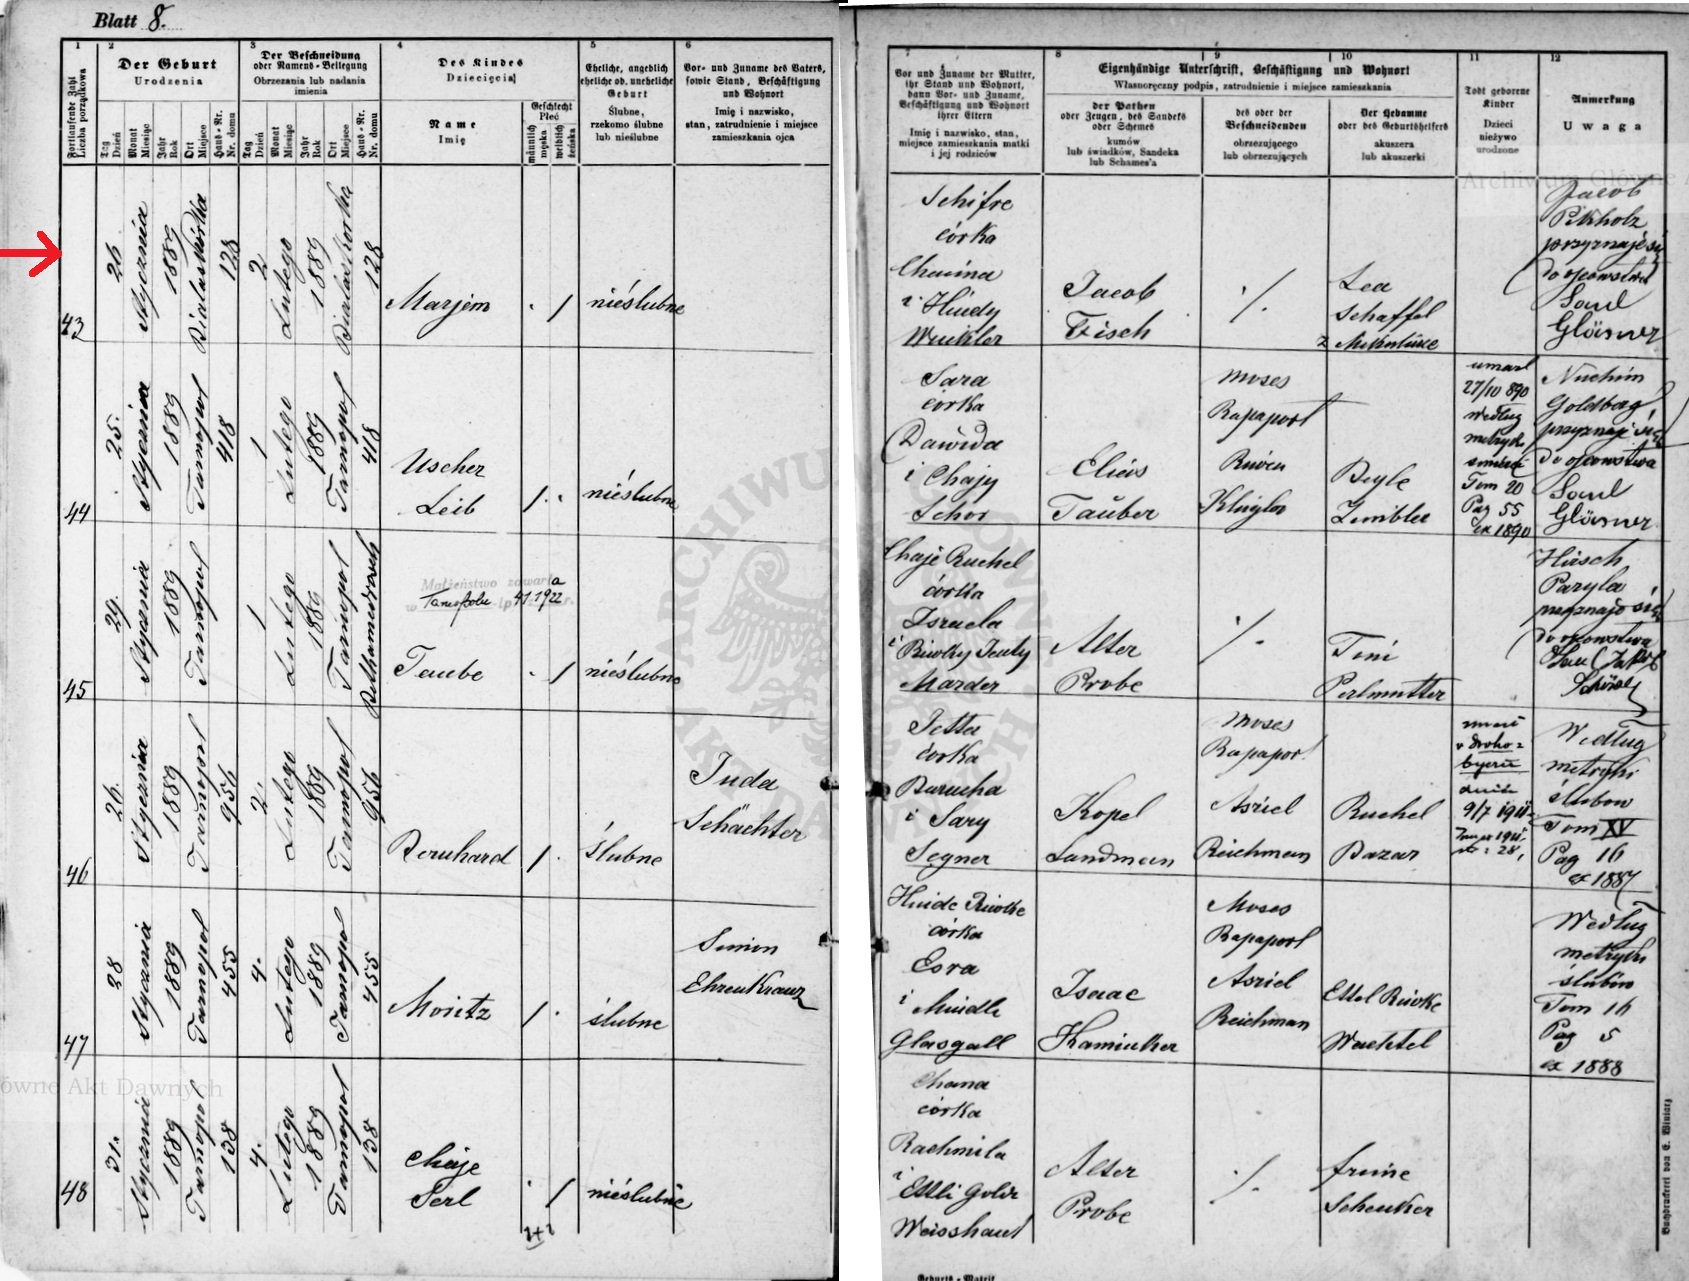 Blatt 8.
1
Fortlaufende Zahl
Liczba porządkowa
2
Der Geburt
Urodzenia
Tag
Dzień
Monat
Miesiąc
Jahr
Rok
Ort
Miejsce
Haus-Nr.
Nr. domu
3
Der Beschneidung
oder Namens-Beilegung
Obrzezania lub nadania
imienia
Tag
Dzień
Monat
Miesiąc
Jahr
Rok
Ort
Miejsce
Haus-Nr.
Nr. domu
4
Des Kindes
Dziecięcia
Name
Imię
Geschlecht
Płeć
männlich
męska
weiblich
żeńska
5
Eheliche, angeblich
eheliche od. uneheliche
Geburt
Ślubne,
rzekomo ślubne
lub nieślubne
6
Vor- und Zuname des Vaters,
sowie Stand, Beschäftigung
und Wohnort
Imię i nazwisko,
stan, zatrudnienie i miejsce
zamieszkania ojca
7
Vor und Zuname der Mutter,
ihr Stand und Wohnort,
dann Vor- und Zuname,
Beschäftigung und Wohnort
ihrer Eltern
Imię i nazwisko, stan,
miejsce zamieszkania matki
i jej rodziców
8
9
10
Eigenhändige Unterschrift, Beschäftigung und Wohnort
Własnoręczny podpis, zatrudnienie i miejsce zamieszkania
der Pathen
oder Zeugen, des Sandeks
oder Schames
kumów
lub świadków, Sandeka
lub Schames'a
des oder der
Beschneidenden
obrzezującego
lub obrzezujących
Der Hebamme
oder des Geburtshelfers
akuszera
lub akuszerki
11
Todt geborene
Kinder
Dzieci
nieżywo
urodzone
12
Anmerkung
Uwaga
43
26
Stycznia
1889
128
2
Lutego
1889
128
Marjem
/
nieślubne
Schifre
córka
Chaima
i Hindy
Winkler
Jacob
Fisch
/.
Lea
Schaffel
z
Jacob
Pikholz
przyznaje się
do ojcowstwa
Saul
Gläsner
44
25.
Stycznia
1889
Tarnopol
418
1
Lutego
1889
Tarnopol
418
Uscher
Leib
/.
nieślubne
Sara
córka
Dawida
i Chajy
Schor
Elias
Tauber
Moses
Rapaport
Ruwen
Beyle
umarł
27/10 890
według
metryk
śmierci
Tom 20
Pag 55
ex 1890
Nuchim
Goldberg
przyznaje się
do ojcowstwa
Saul
Gläsner
45
29.
Stycznia
1889
Tarnopol
1
Lutego
1889
Tarnopol
Małżeństwo zawarła
w Tarnopolu
1922 r.
Taube
/
nieślubne
Chaje Ruchel
córka
Izraela
i Riwky Jenty
Marder
Alter
Probe
/.
Toni
Perlmutter
Hirsch
Paryla
przyznaje się
do ojcowstwa
46
26.
Stycznia
1889
Tarnopol
956
2.
Lutego
1889
Tarnopol
956
Bernhard
/.
ślubne
Juda
Schächter
Jetta
córka
Barucha
i Sary
Segner
Kopel
Landmann
Moses
Rapaport
Asriel
Reichman
Ruchel
Bazar
Według
metryki
ślubów
Tom XV
Pag 16
ex 1887
47
28
Stycznia
1889
Tarnopol
455
4.
Lutego
1889
Tarnopol
455
Moritz
/.
ślubne
Simon
Ehrenkranz
Hinde Riwke
córka
Esra
i Mindli
Glasgall
Isaac
Kaminker
Moses
Rapaport
Asriel
Reichman
Ettel Riwke
Wachtel
Według
metryki
ślubów
Tom 16
Pag 5
ex 1888
48
31.
Stycznia
1889
Tarnopol
138
4.
Lutego
1889
Tarnopol
138
Chaje
Perl
/
nieślubne
Chana
córka
Rachmila
i Ettli Goldr
Weisshaut
Alter
Probe
/.
Freine
Schenker
Buchdruckerei von E. Winiarz
Geburts-Matrik
ARCHIWUM GŁÓWNE AKT DAWNYCH
Archiwum Główne A
ówne Akt Dawnych